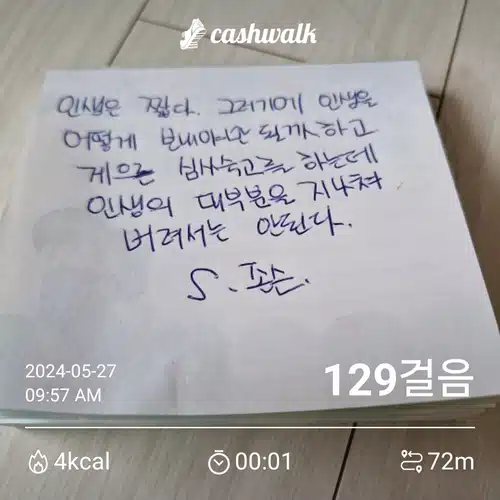 cashwalk
인생은 짧다. 그러기에 인생을
어떻게 보내야만 될까 하고
게으른 심사숙고를 하는데
인생의 대부분을 지나쳐
버려서는 안된다.
S. 존슨.
2024-05-27
09:57 AM
129걸음
4kcal
00:01
72m